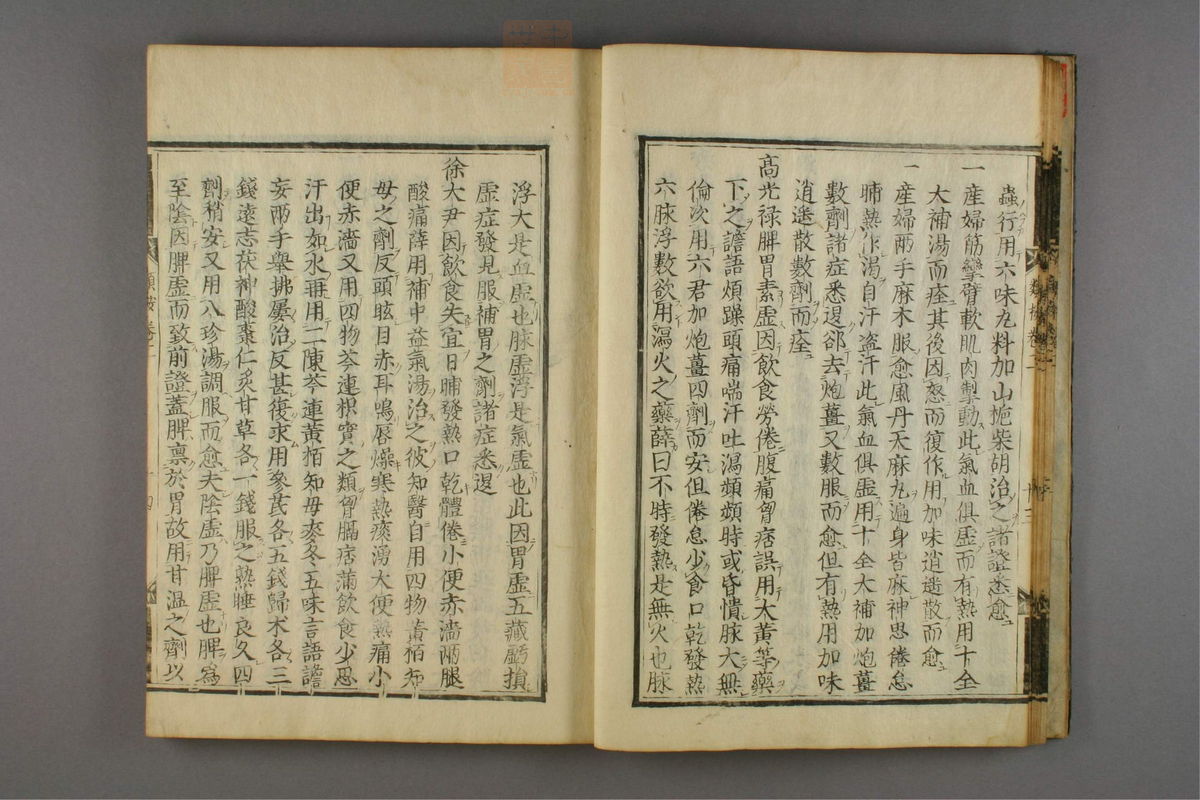 蟲行用六味丸料加山梔柴胡治之諸證悉愈
一産婦筋攣臂軟肌肉掣動此氣血俱虛而有熱用十全
大補湯而痊其後因怒而復作用加味逍遥散而愈
一産婦兩手麻木服愈風丹天麻丸遍身皆麻神思倦怠
晡熱作渴自汗盗汗此氣血俱虛用十全大補加炮薑
數劑諸症悉退卻去炮薑又數服而愈但有熱用加味
逍遥散數劑而痊
髙光禄脾胃素虛因飲食勞倦腹痛胷痞誤用大黄等藥
下之譫語煩躁頭痛喘汗吐瀉頻頻時或昏憒脉大無
倫次用六君加炮薑四劑而安但倦怠少食口乾發熱
六脉浮數欲用瀉火之藥薛曰不時發熱是無火也脉
浮大是血虛也脉虛浮是氣虛也此因胃虛五藏虧損
虛症發見服補胃之劑諸症悉退
徐大尹因飲食失宜日晡發熱口乾體倦小便赤濇兩腿
酸痛薛用補中益氣湯治之彼知醫自用四物黄栢知
母之劑反頭眩目赤耳鳴唇燥寒熱痰湧大便熱痛小
便赤濇又用四物芩連枳實之類胷膈痞滿飲食少思
汗出如水再用二陳芩連黄栢知母麥冬五味言語譫
妄兩手舉拂屢治反甚復求用參芪各五錢歸术各三
錢遠志茯神酸棗仁炙甘草各一錢服之熟睡良久四
劑稍安又用八珍湯調服而愈夫陰虛乃脾虛也脾爲
至陰因脾虛而致前證蓋脾禀於胃故用甘温之劑以